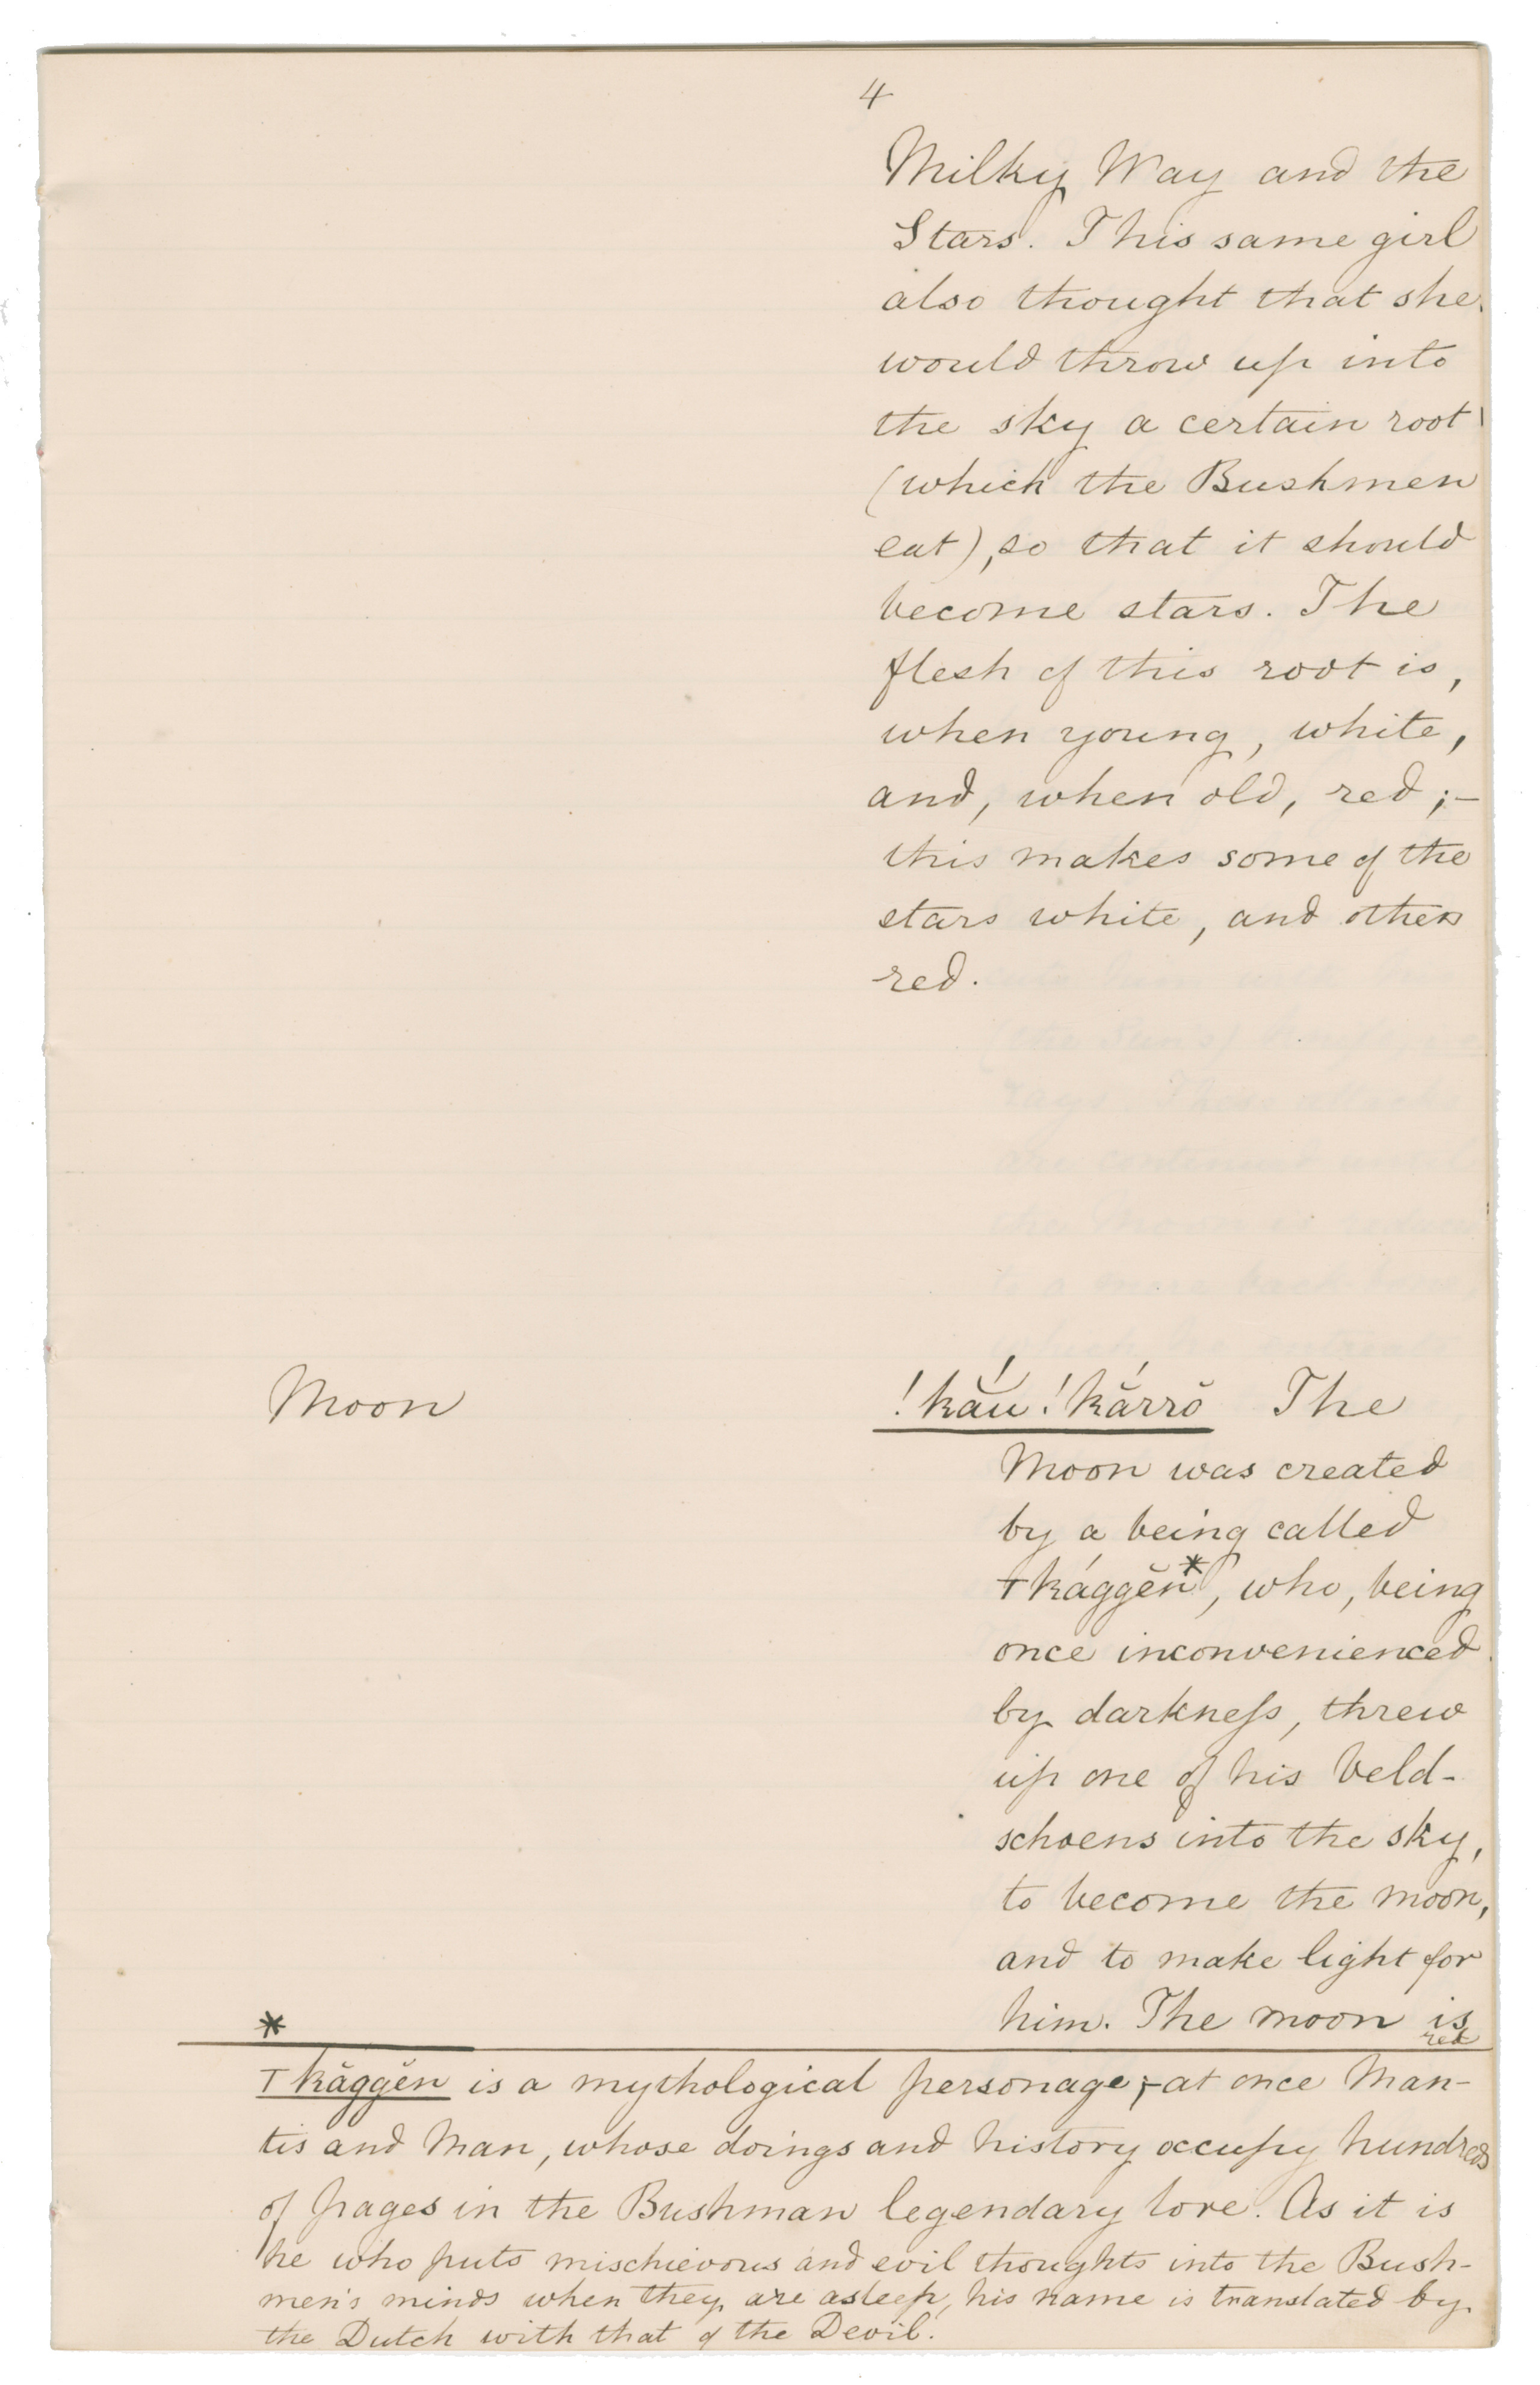 4
Milky Way and the
Stars. This same girl
also thought that she
would throw up into
the sky a certain root
(which the Bushmen
eat), so that it should
become stars. The
flesh of this root is,
when young, white,
and, when old, red;-
this makes some of the
stars white, and others
red.
Moon
!kắu!kắrrŏ The
Moon was created
by a being called
⊤kággĕn*, who, being
once inconvenienced
by darkneſs, threw
up one of his Veld-
schoens into the sky,
to become the moon,
and to make light for
him. The moon is
red
*
⊤kăggĕn is a mythological personage;-at once Man-
tis and Man, whose doings and history occupy hundreds
of pages in the Bushman legendary lore. As it is
he who puts mischievous and evil thoughts into the Bush-
men's minds when they are asleep, his name is translated by
the Dutch with that of the Devil.